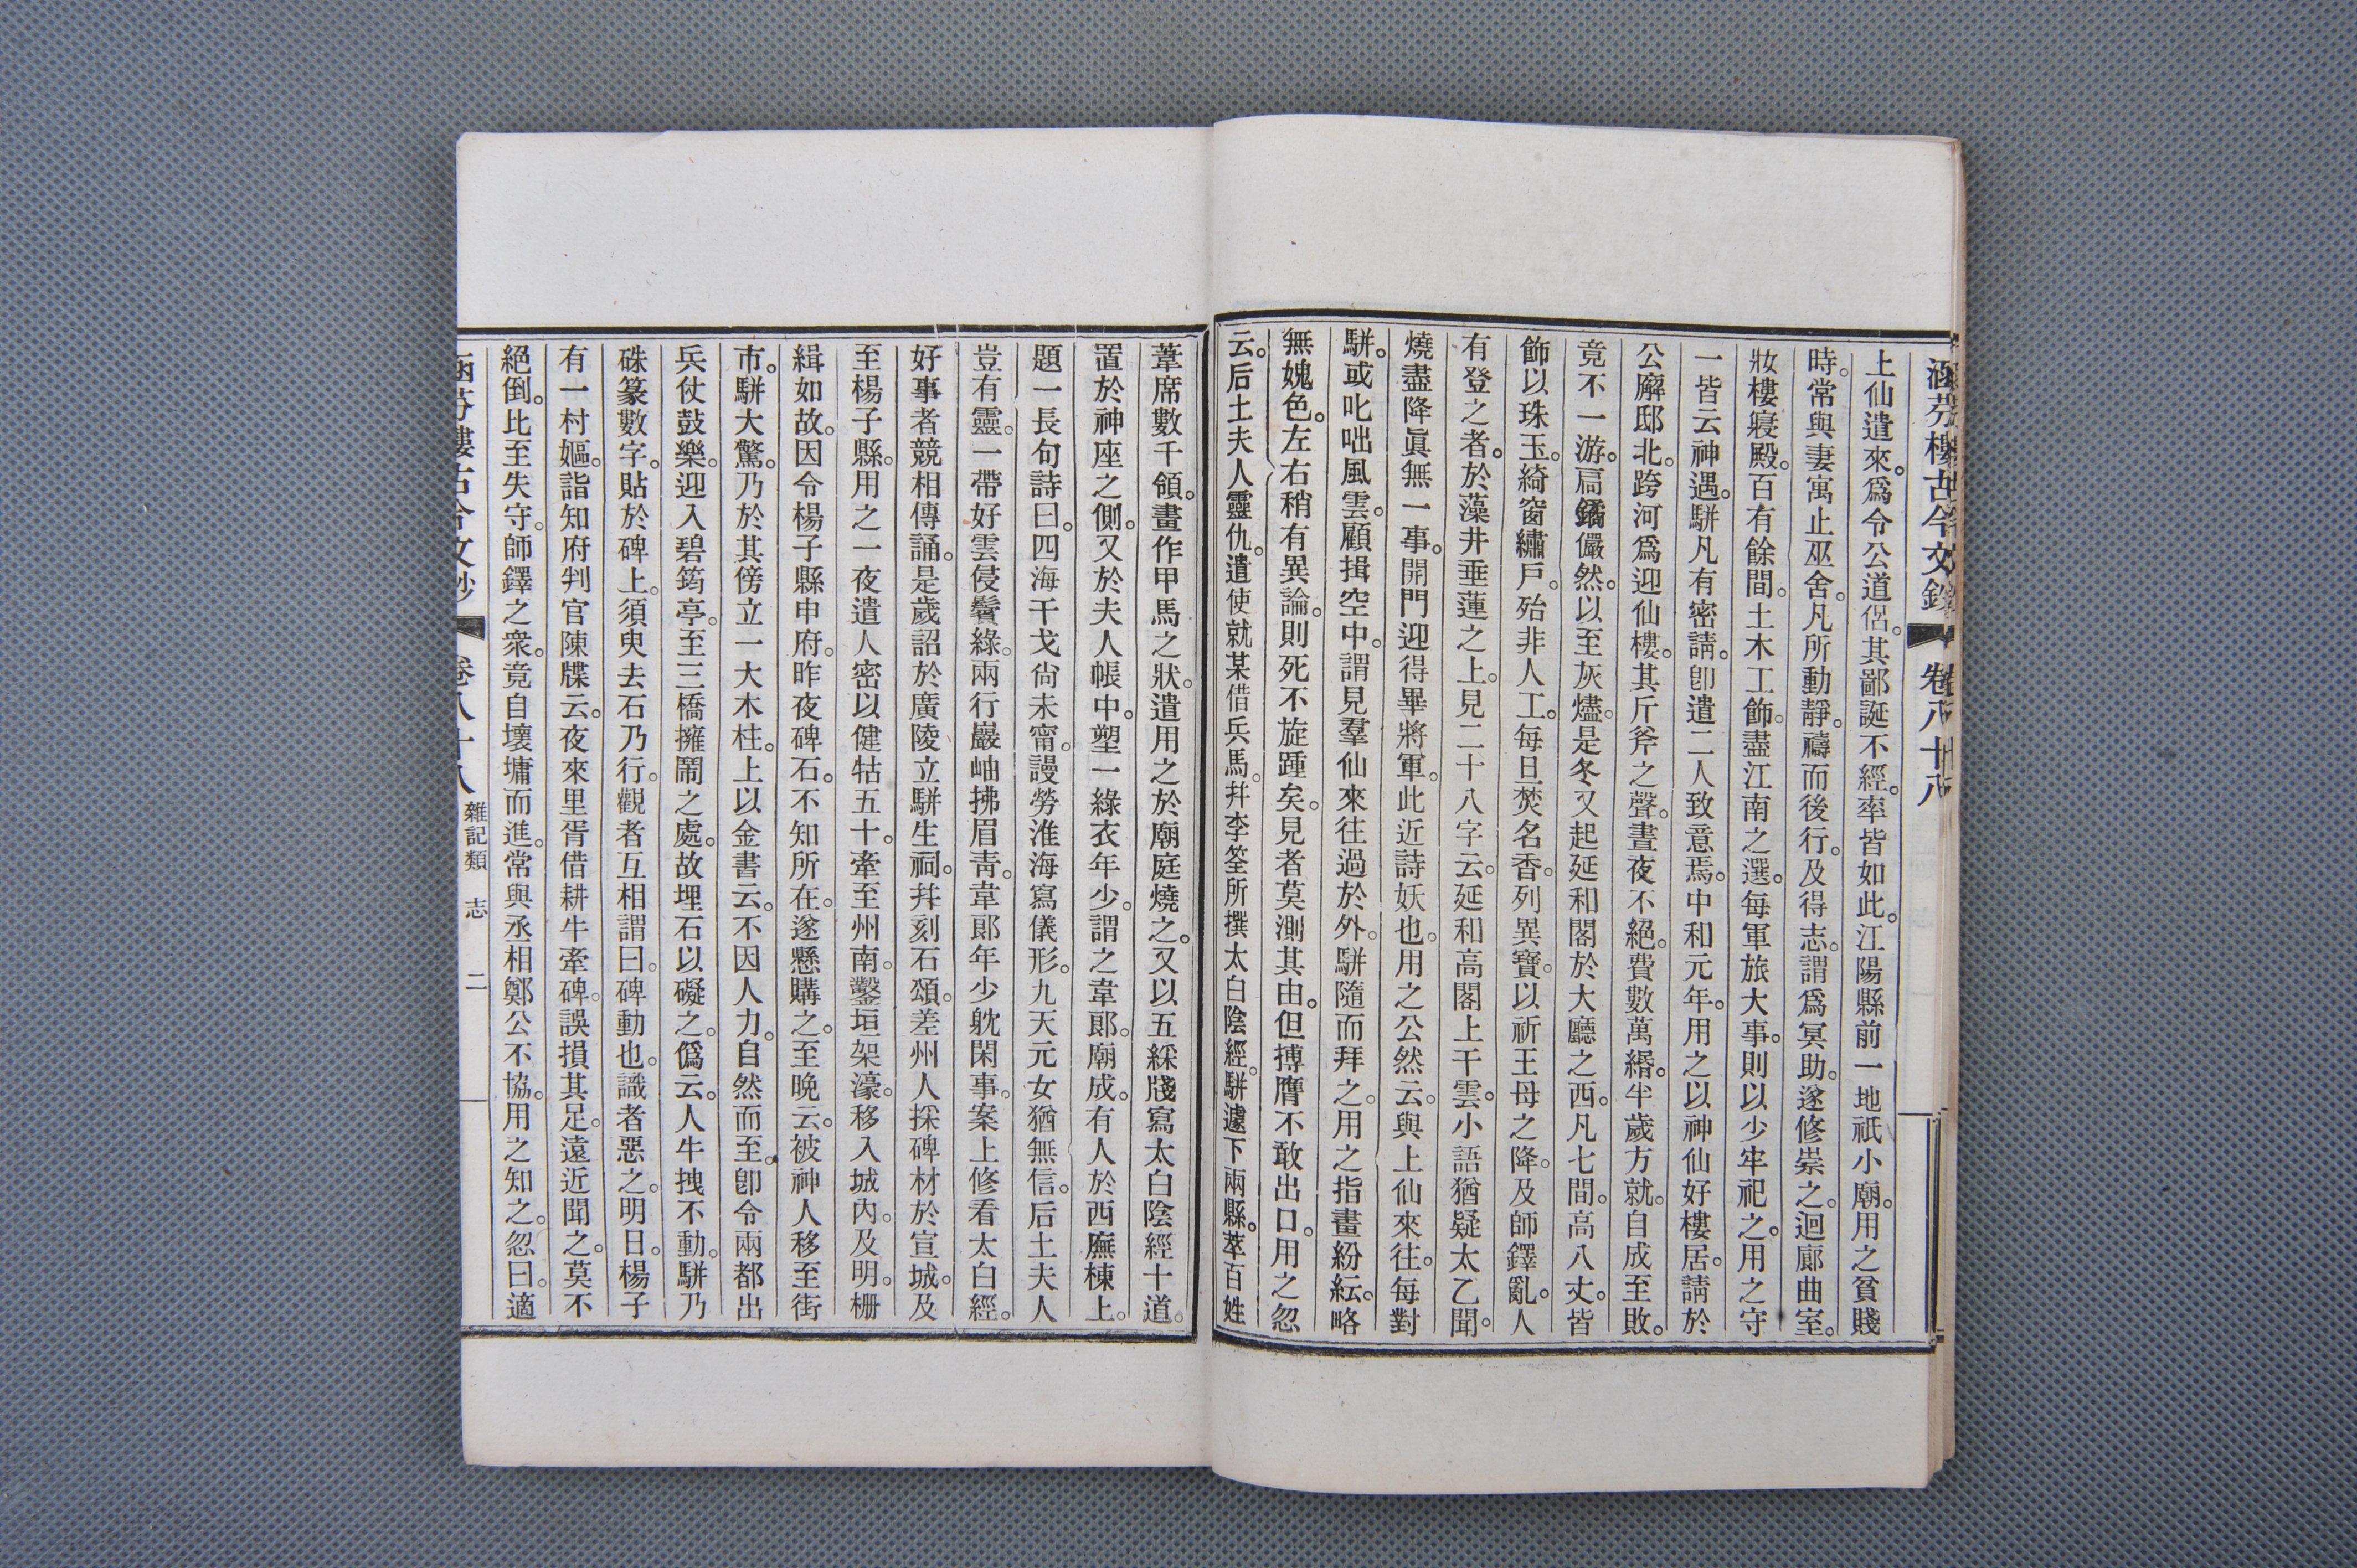 涵芬樓古今文鈔 卷八十八
上仙遣來。爲令公道侶。其鄙誕不經。率皆如此。江陽縣前一地祇小廟。用之貧賤
時。常與妻寓止巫舍。凡所動靜。禱而後行。及得志。謂爲冥助。遂修崇之。迴廊曲室。
妝樓寢殿。百有餘間。土木工飾。盡江南之選。每軍旅大事。則以少牢祀之。用之守
一皆云神遇。駢凡有密請。卽遣二人致意焉。中和元年。用之以神仙好樓居。請於
公廨邸北。跨河爲迎仙樓。其斤斧之聲。晝夜不絕。費數萬緡。半歲方就。自成至敗。
竟不一游。扃鐍儼然。以至灰燼。是冬又起延和閣於大廳之西。凡七間。高八丈。皆
飾以珠玉。綺窗繡戶。殆非人工。每旦焚名香。列異寶。以祈王母之降。及師鐸亂。人
有登之者。於藻井垂蓮之上。見二十八字云。延和高閣上干雲。小語猶疑太乙聞。
燒盡降眞無一事。開門迎得畢將軍。此近詩妖也。用之公然云。與上仙來往。每對
駢。或叱咄風雲。顧揖空中。謂見羣仙來往過於外。駢隨而拜之。用之指畫紛紜。略
無媿色。左右稍有異論。則死不旋踵矣。見者莫測其由。但搏膺不敢出口。用之忽
云。后土夫人靈仇。遣使就某借兵馬。幷李筌所撰太白陰經。駢遽下兩縣。萃百姓
葦席數千領。畫作甲馬之狀。遣用之於廟庭燒之。又以五綵牋寫太白陰經十道。
置於神座之側。又於夫人帳中。塑一綠衣年少。謂之韋郞。廟成。有人於西廡棟上。
題一長句詩曰。四海干戈尙未甯。謾勞淮海寫儀形。九天元女猶無信。后土夫人
豈有靈。一帶好雲侵鬢綠。兩行巖岫拂眉靑。韋郞年少躭閑事。案上修看太白經。
好事者競相傳誦。是歲詔於廣陵立駢生祠。幷刻石頌。差州人採碑材於宣城。及
至楊子縣。用之一夜遣人密以健牯五十。牽至州南。鑿垣架濠。移入城內。及明。柵
緝如故。因令楊子縣申府。昨夜碑石。不知所在。遂懸購之。至晚云。被神人移至街
市。駢大驚。乃於其傍立一大木柱。上以金書云。不因人力。自然而至。卽令兩都出
兵仗鼓樂。迎入碧筠亭。至三橋擁鬧之處。故埋石以礙之。僞云。人牛拽不動。駢乃
硃篆數字。貼於碑上。須臾去石乃行。觀者互相謂曰。碑動也。識者惡之。明日。楊子
有一村嫗。詣知府判官陳牒云。夜來里胥借耕牛牽碑。誤損其足。遠近聞之。莫不
絕倒。比至失守。師鐸之衆。竟自壞墉而進。常與丞相鄭公不協。用之知之。忽曰。適
涵芬樓古今文鈔 卷八十八 雜記類 志 二